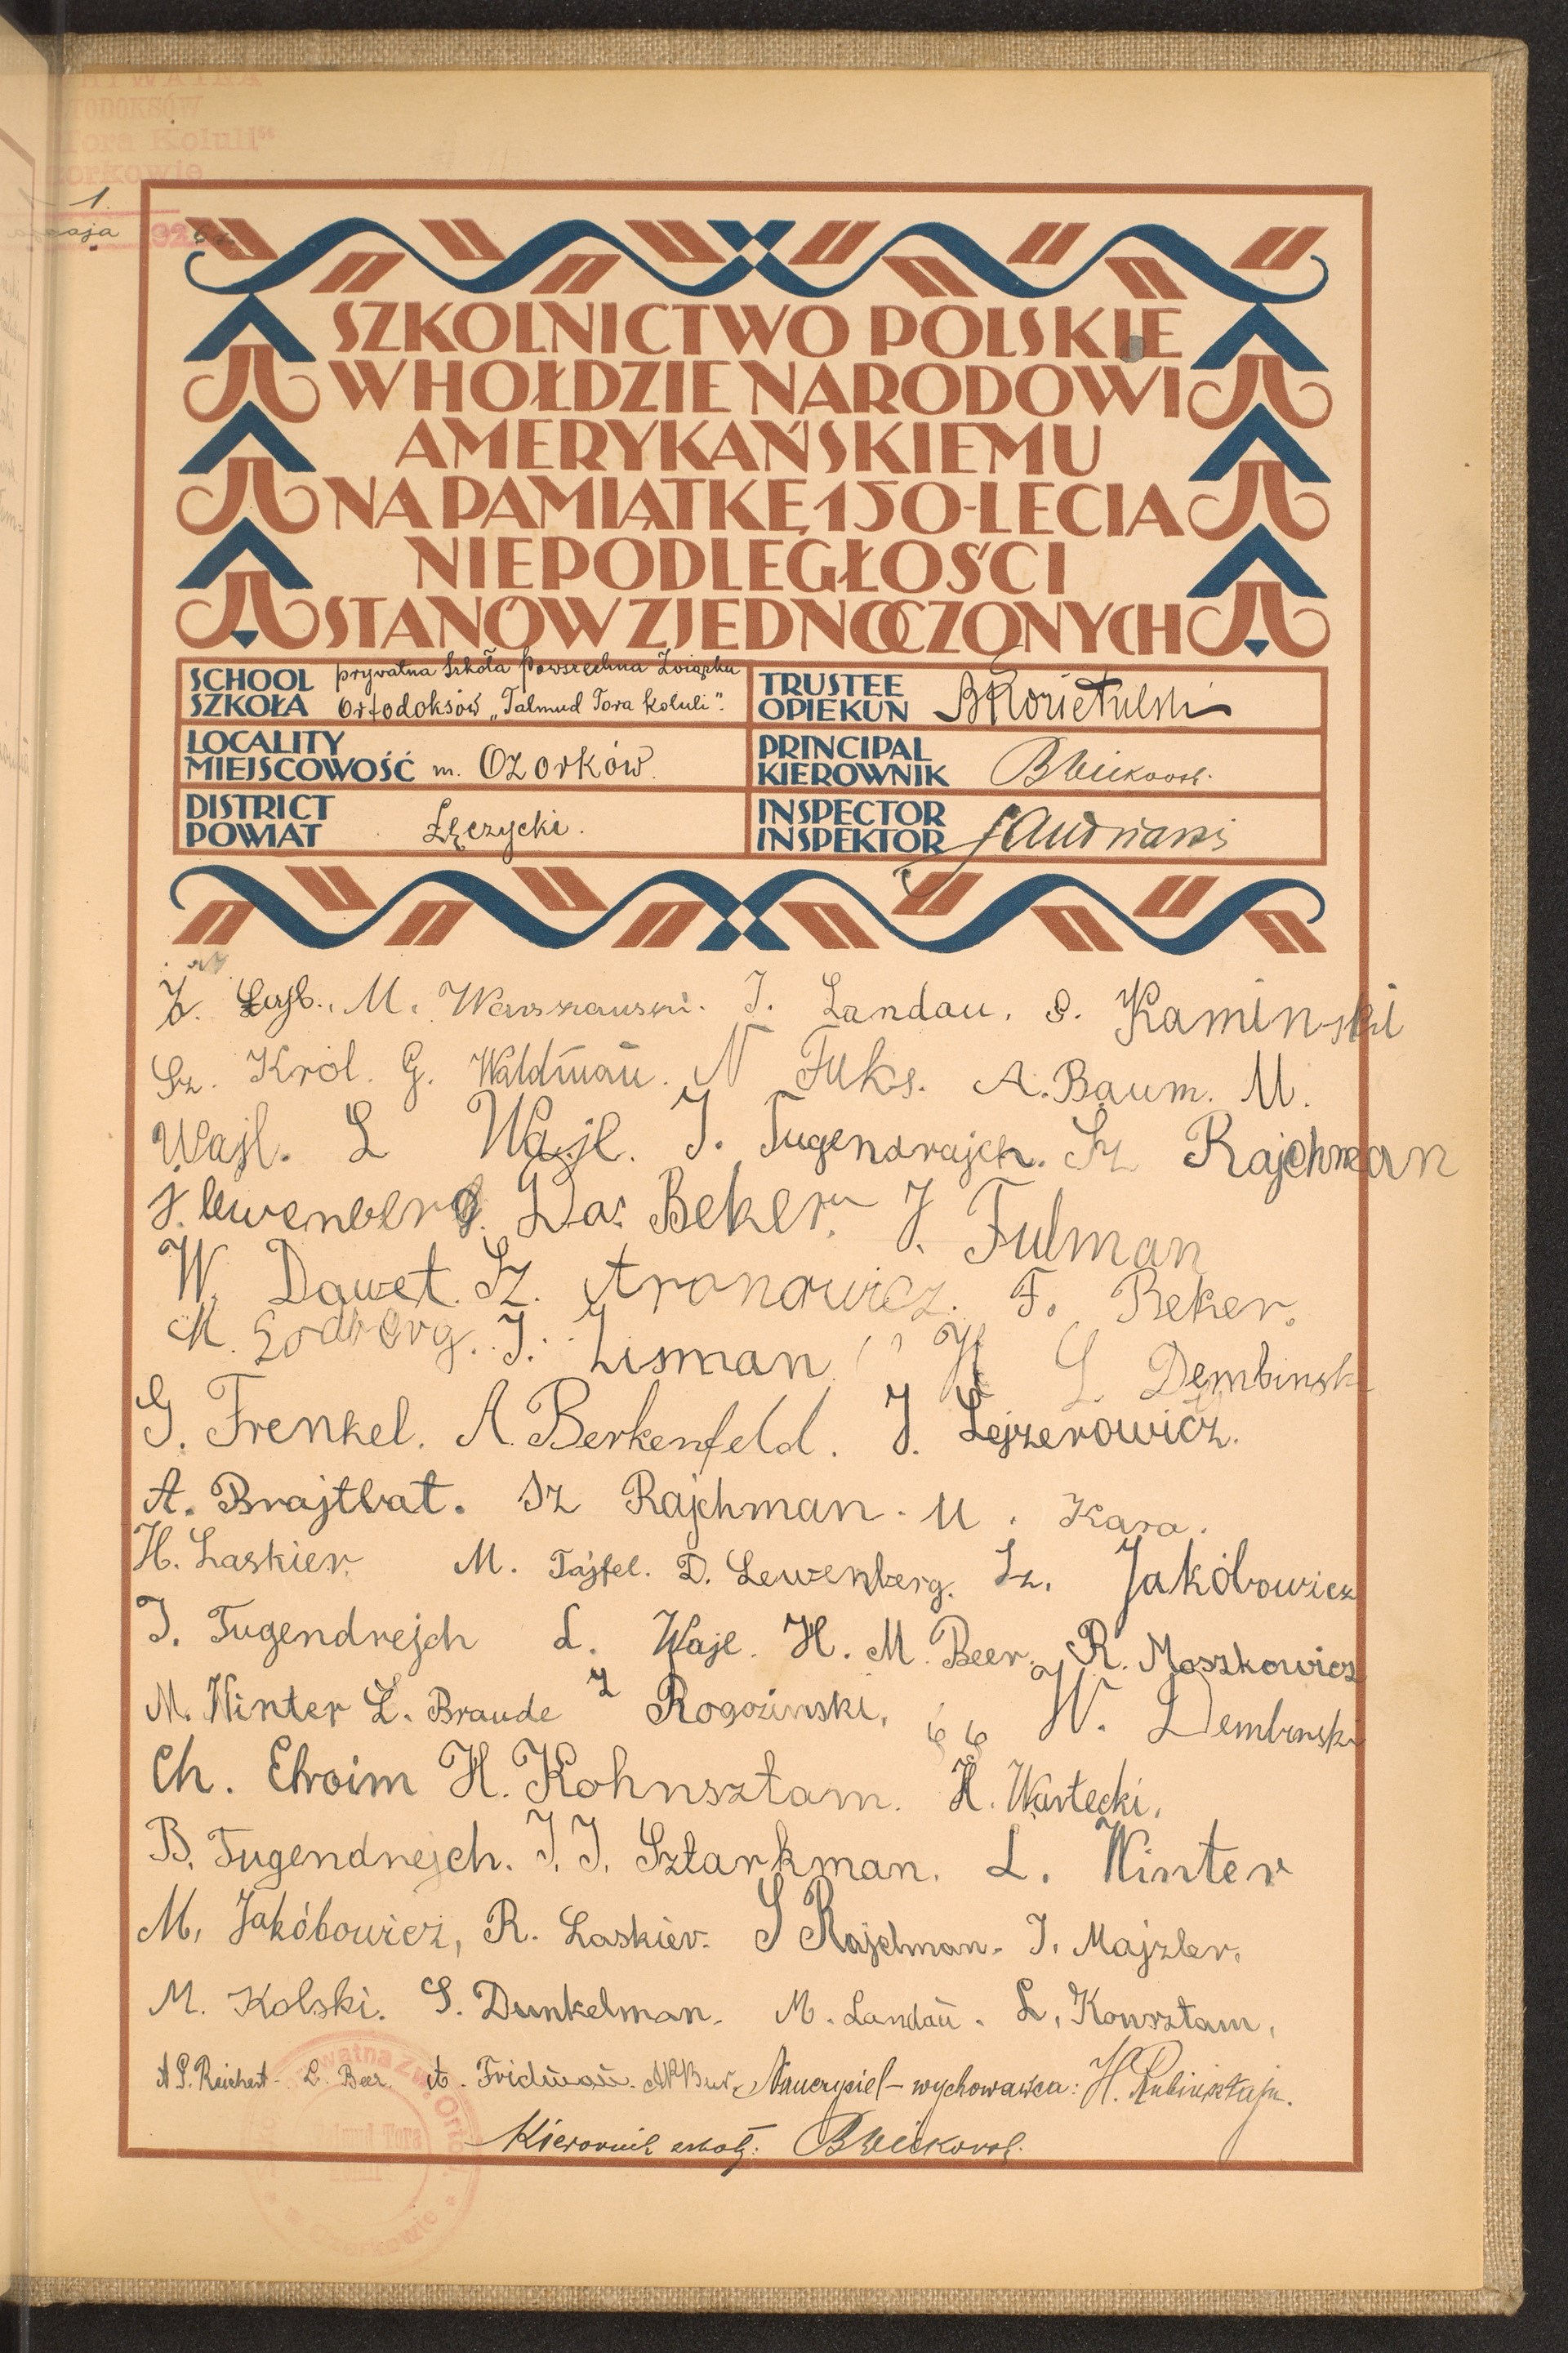 Tora Koluli"
1.
maja
SZKOLNICTWO POLSKIE
W HOŁDZIE NARODOWI
AMERYKAŃSKIEMU
NA PAMIĄTKĘ 150-LECIA
NIEPODLEGŁOŚCI
STANÓW ZJEDNOCZONYCH
SCHOOL prywatna Szkoła Powszechna Związku
SZKOŁA Ortodoksów „Talmud Tora Koluli".
TRUSTEE
OPIEKUN
LOCALITY
MIEJSCOWOŚĆ m. Ozorków.
PRINCIPAL
KIEROWNIK
DISTRICT
POWIAT Łęczycki.
INSPECTOR
INSPEKTOR
M. Warszawski. J. Landau. S. Kaminski
Sz. Król. G. Waldman. N Fuks. A. Baum. M.
Wajl. L Wajl. J. Tugendrajch. Sz Rajchman
J. lewenberg. Da. Beker. J. Fulman
W. Dawet. Sz. Aronowicz. F. Beker.
M. J. Lisman H L. Dembinski
G. Frenkel. A. Berkenfeld. J. Lejzerowicz.
A. Brajtbat. Sz Rajchman. M. Kara.
H. Laskier. M. Tajfel. D. Lewenberg. Sz. Jakóbowicz
J. Tugendrejch L. Wajl. H. M. Beer. R. Moszkowicz
M. Winter L. Braude I Rogozinski, W. Dembinski
Ch. Elroim H. Kohnsztam. H. Wartecki.
B. Tugendrejch. J. J. Sztarkman. L. Winter
M. Jakóbowicz, R. Laskier. S Rajchman. J. Majzler.
M. Kolski. S. Dunkelman. M. Landau. L. Konsztam.
A P. Reichert L. Beer. A. Fridman. Nauczyciel - wychowawca: H. Rubinsztajn.
Kierownik szkoły: